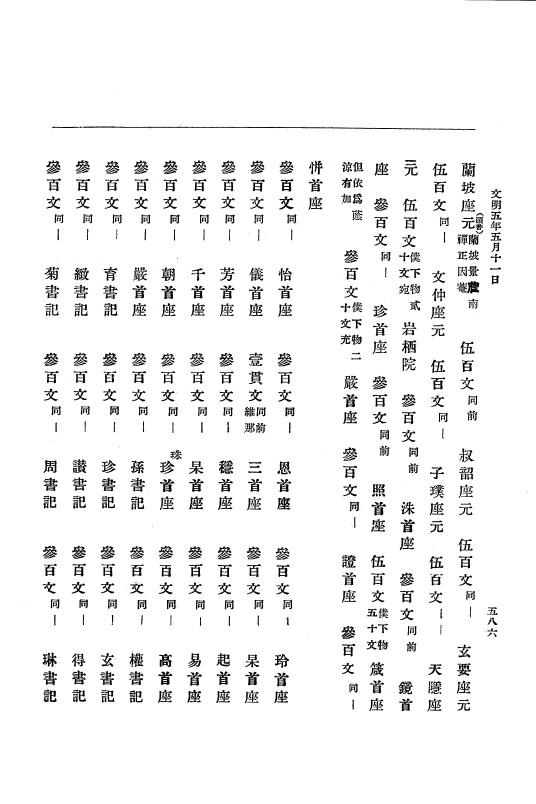 文明五年五月十一日
五八六
蘭坡座元（頭書）蘭坡景茝南禪正因菴 伍百文同前 叔韶座元 伍百文同ー 玄要座元
伍百文同ー 文仲座元 伍百文同ー 子璞座元 伍百文ーー 天隱座
元 伍百文僕下物貳十文宛 岩栖院 參百文同前 洙首座 參百文同前 鏡首
座 參百文同ー 珍首座 參百文同前 照首座 伍百文僕下物五十文 箴首座
但依爲蔭涼有加 參百文僕下物二十文充 嚴首座 參百文同ー 證首座 參百文同ー
恲首座
參百文同ー 怡首座 參百文同ー 恩首座 參百文同ー 玲首座
參百文同ー 儀首座 壹貫文同前維那 三首座 參百文同ー 杲首座
參百文同ー 芳首座 參百文同ー 穩首座 參百文同ー 起首座
參百文同ー 千首座 參百文同ー 杲首座 參百文同ー 易首座
參百文同ー 朝首座 參百文同ー 珍首座 珠 參百文同ー 高首座
參百文同ー 嚴首座 參百文同ー 孫書記 參百文同ー 權書記
參百文同ー 育書記 參百文同ー 珍書記 參百文同ー 玄書記
參百文同ー 緻書記 參百文同ー 讃書記 參百文同ー 得書記
參百文同ー 菊書記 參百文同ー 周書記 參百文同ー 琳書記